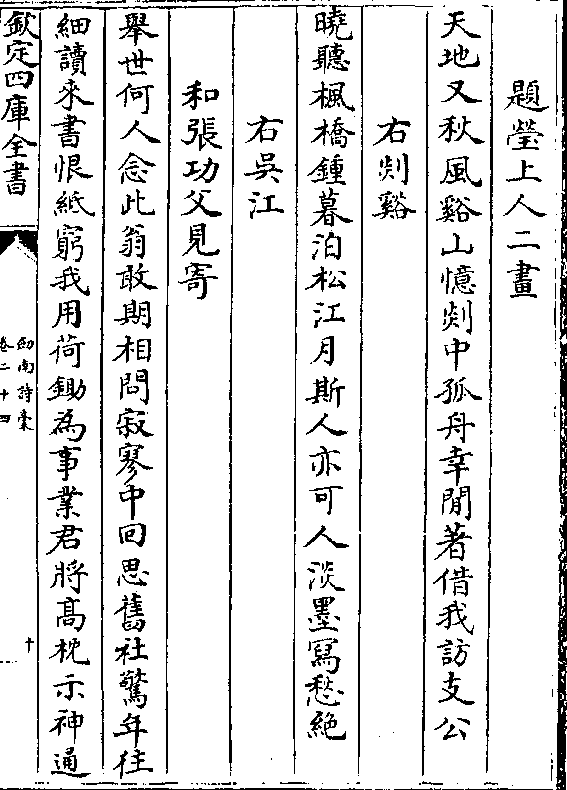 題瑩上人二畫
天地又秋風谿山憶剡中孤舟幸閒著借我訪支公
右剡谿
曉聽楓橋鍾暮泊松江月斯人亦可人淡墨寫愁絶
右吳江
和張功父見寄
舉世何人念此翁敢期相問寂寥中回思舊社驚年往
細讀來書恨紙窮我用荷鋤為事業君將髙枕示神通
欽定四庫全書
劒南詩稾
卷二十四
十